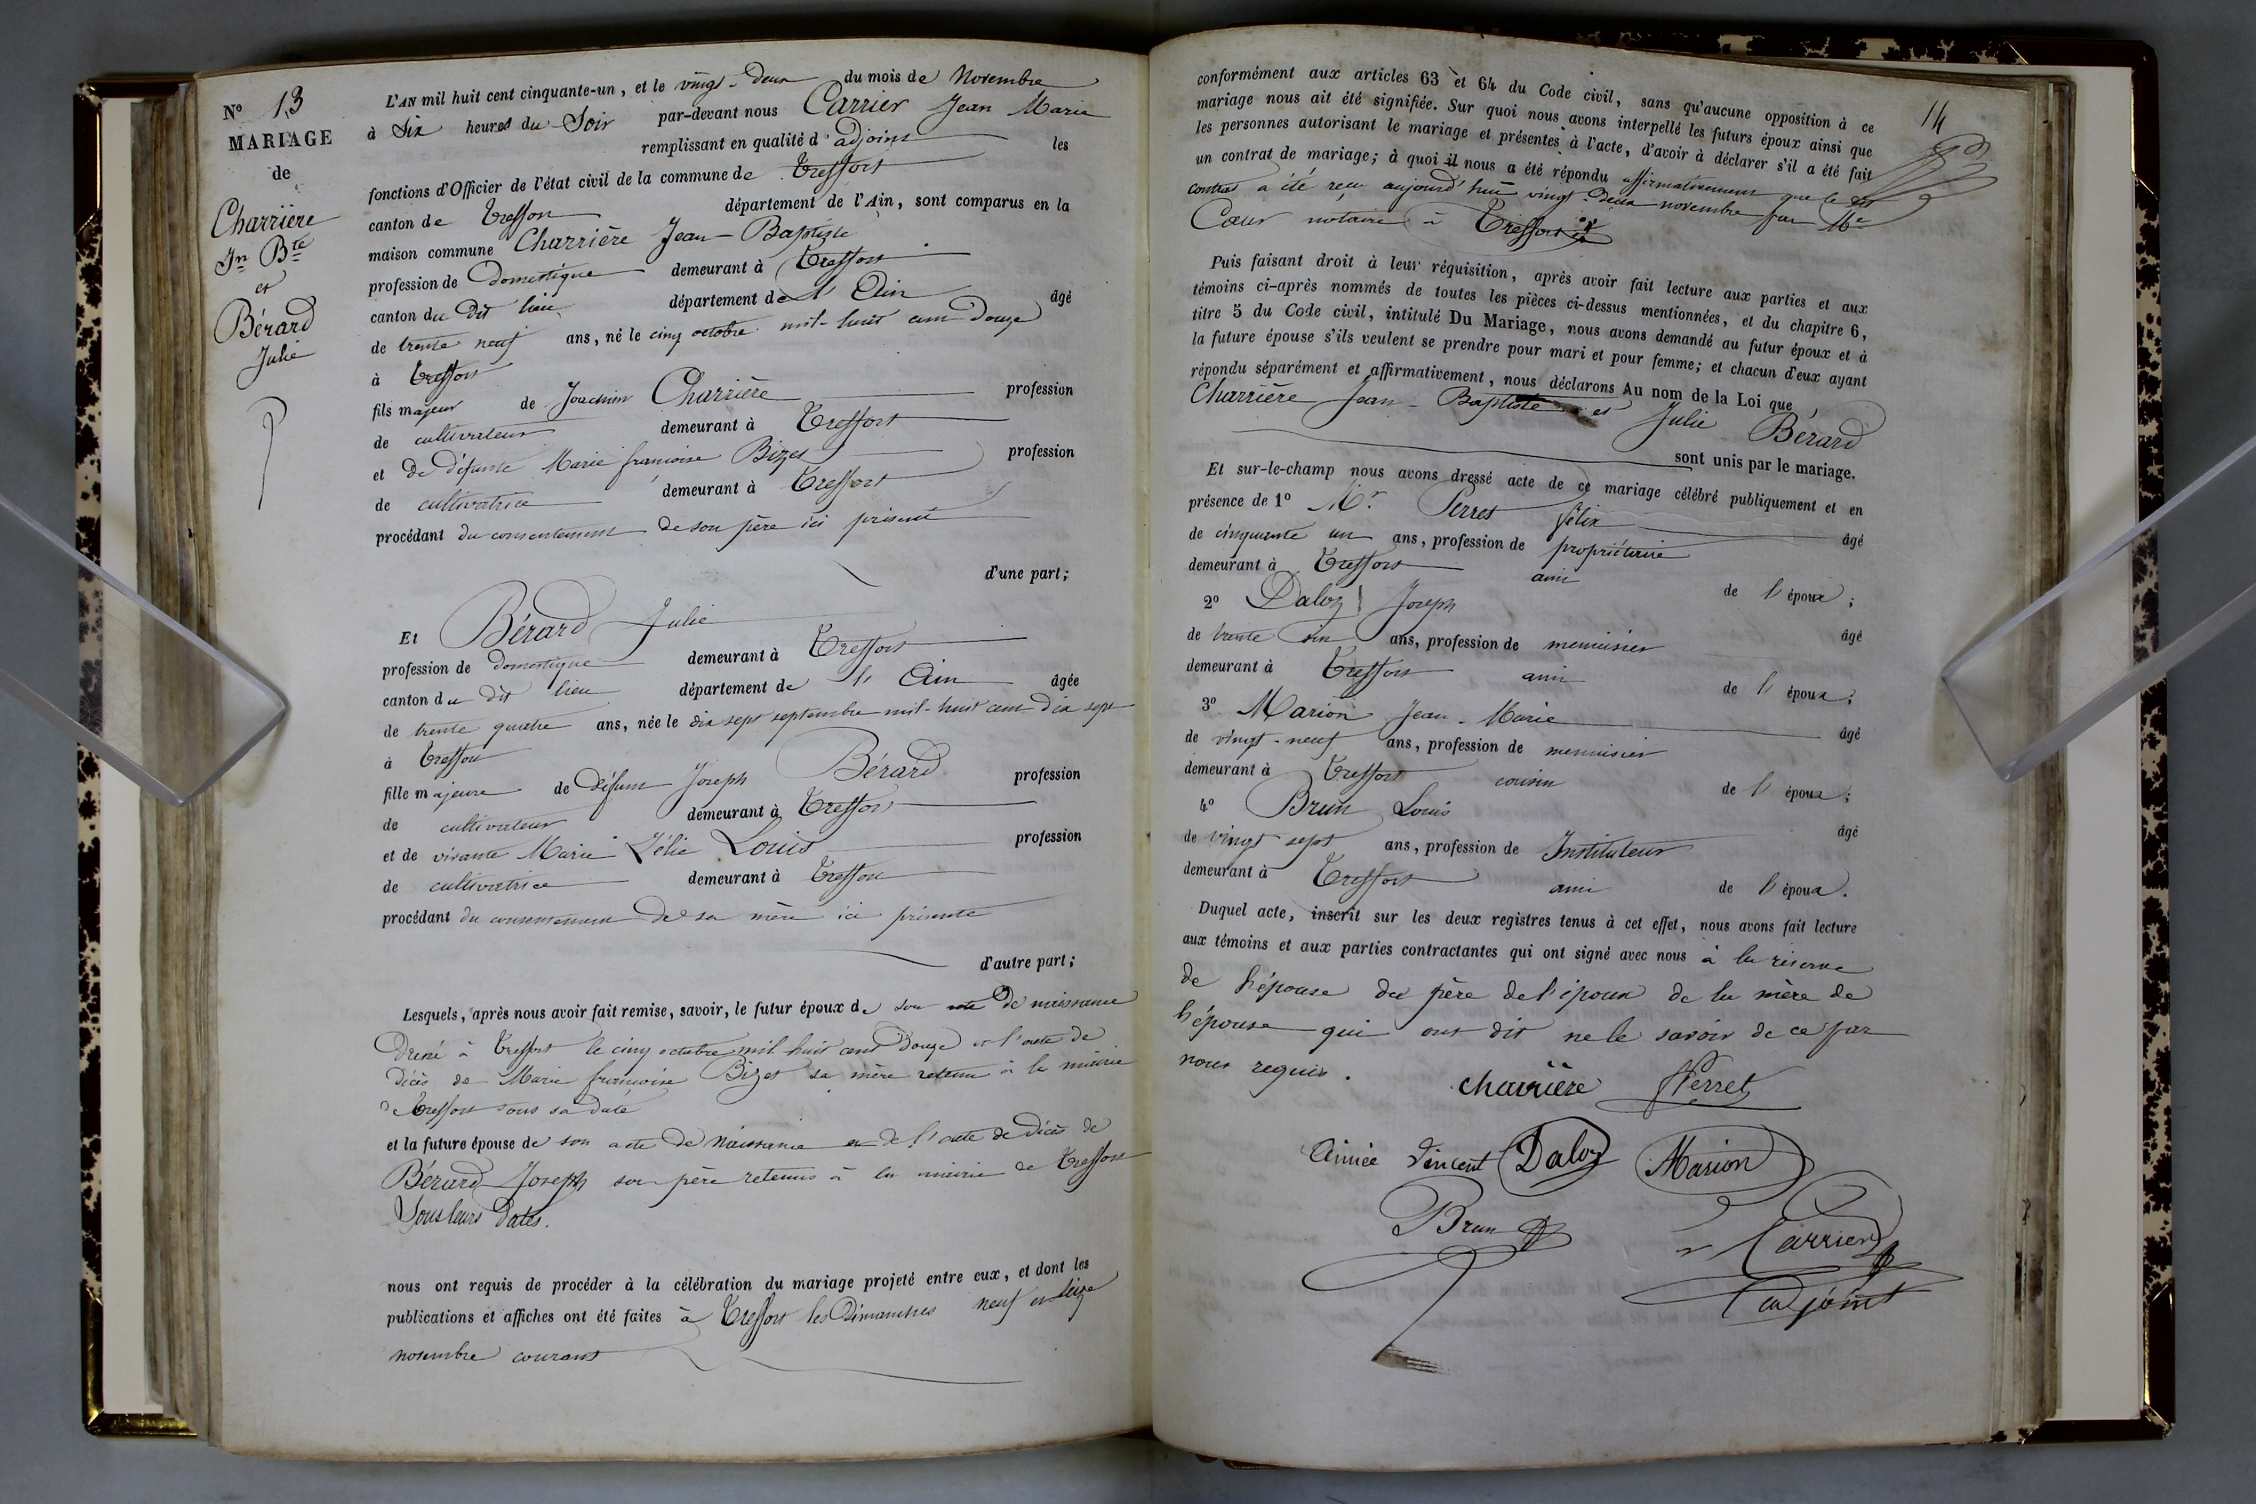 N° 13
MARIAGE
de
Charrière
Jn Bte
et
Bérard
Julie
L'AN mil huit cent cinquante-un, et le vingt-deux du mois de Novembre
à Six heures du Soir par-devant nous Carrier Jean Marie
remplissant en qualité d'adjoint les
fonctions d'Officier de l'état civil de la commune de Treffort
canton de Treffort département de l'Ain, sont comparus en la
maison commune Charrière Jean-Baptiste
profession de Domestique demeurant à Treffort
canton du dit lieu département de l'Ain âgé
de trente neuf ans, né le cinq octobre mil-huit cent Douze
à Treffort
fils majeur de Joachim Charrière profession
de cultivateur demeurant à Treffort
et de défunte Marie françoise Bizet profession
de cultivatrice demeurant à Treffort
procédant du consentement de son père ici présent
d'une part;
Et Bérard Julie
profession de domestique demeurant à Treffort
canton du dit lieu département de l'Ain âgée
de trente quatre ans, née le dix sept septembre mil-huit cent dix sept
à Treffort
fille majeure de défunt Joseph Bérard profession
de cultivateur demeurant à Treffort
et de vivante Marie Zélie Louis profession
de cultivatrice demeurant à Treffort
procédant du consentement de sa mère ici présente
d'autre part;
Lesquels, après nous avoir fait remise, savoir, le futur époux de son acte de naissance
Dressé à Treffort le cinq octobre mil huit cent Douze et l'acte de
décès de Marie françoise Bizet sa mère retenu à la mairie
de Treffort sous sa date
et la future épouse de son acte de Naissance et de l'acte de décès de
Bérard Joseph son père retenus à la mairie de Treffort
Sous leurs dates.
nous ont requis de procéder à la célébration du mariage projeté entre eux, et dont les
publications et affiches ont été faites à Treffort les Dimanches neuf et seize
novembre courant
14
conformément aux articles 63 et 64 du Code civil, sans qu'aucune opposition à ce
mariage nous ait été signifiée. Sur quoi nous avons interpellé les futurs époux ainsi que
les personnes autorisant le mariage et présentes à l'acte, d'avoir à déclarer s'il a été fait
un contrat de mariage; à quoi il nous a été répondu affirmativement que le dit
contrat a été reçu aujourd'hui vingt-deux novembre par Me
Cœur notaire à Treffort
Puis faisant droit à leur réquisition, après avoir fait lecture aux parties et aux
témoins ci-après nommés de toutes les pièces ci-dessus mentionnées, et du chapitre 6,
titre 5 du Code civil, intitulé Du Mariage, nous avons demandé au futur époux et à
la future épouse s'ils veulent se prendre pour mari et pour femme; et chacun d'eux ayant
répondu séparément et affirmativement, nous déclarons Au nom de la Loi que
Charrière Jean-Baptiste et Julie Bérard
sont unis par le mariage.
Et sur-le-champ nous avons dressé acte de ce mariage célébré publiquement et en
présence de 1° Mr. Perret félix
de cinquante un ans, profession de propriétaire âgé
demeurant à Treffort ami de l'époux;
2° Daloz Joseph
de trente six ans, profession de menuisier âgé
demeurant à Treffort ami de l'époux;
3° Marion Jean-Marie
de vingt-neuf ans, profession de menuisier âgé
demeurant à Treffort cousin de l'époux;
4° Brun Louis
de vingt sept ans, profession de Instituteur âgé
demeurant à Treffort ami de l'époux.
Duquel acte, inscrit sur les deux registres tenus à cet effet, nous avons fait lecture
aux témoins et aux parties contractantes qui ont signé avec nous à la réserve
de l'épouse du père de l'époux de la mère de
l'épouse qui ont dit ne le savoir de ce par
nous requis.
charrière fPerret
Aimée Vincent Daloz Marion
Brun
Carrier
adjoint